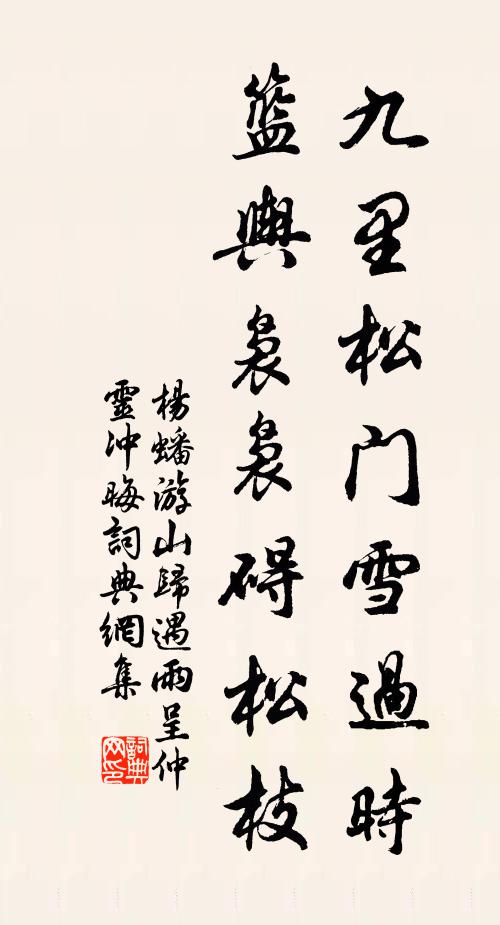 九里松门雪過時
籃輿裊裊碍松枝
楊蟠游山歸遇雨呈仲
靈冲晦詞典網集
詞典网印